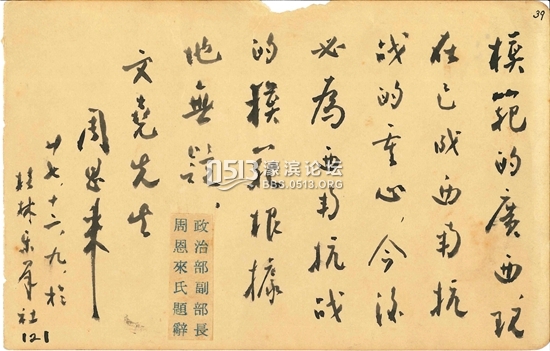 模範的廣西現
在已成西南抗
战的重心，今後
必為西南抗战
的模範根據
地無疑，
文堯先生
周恩来
廿七、十二、九、於
桂林乐羣社
121
政治部副部長
周恩來氏題辭
39
0513 濠滨论坛
BBS.0513.ORG